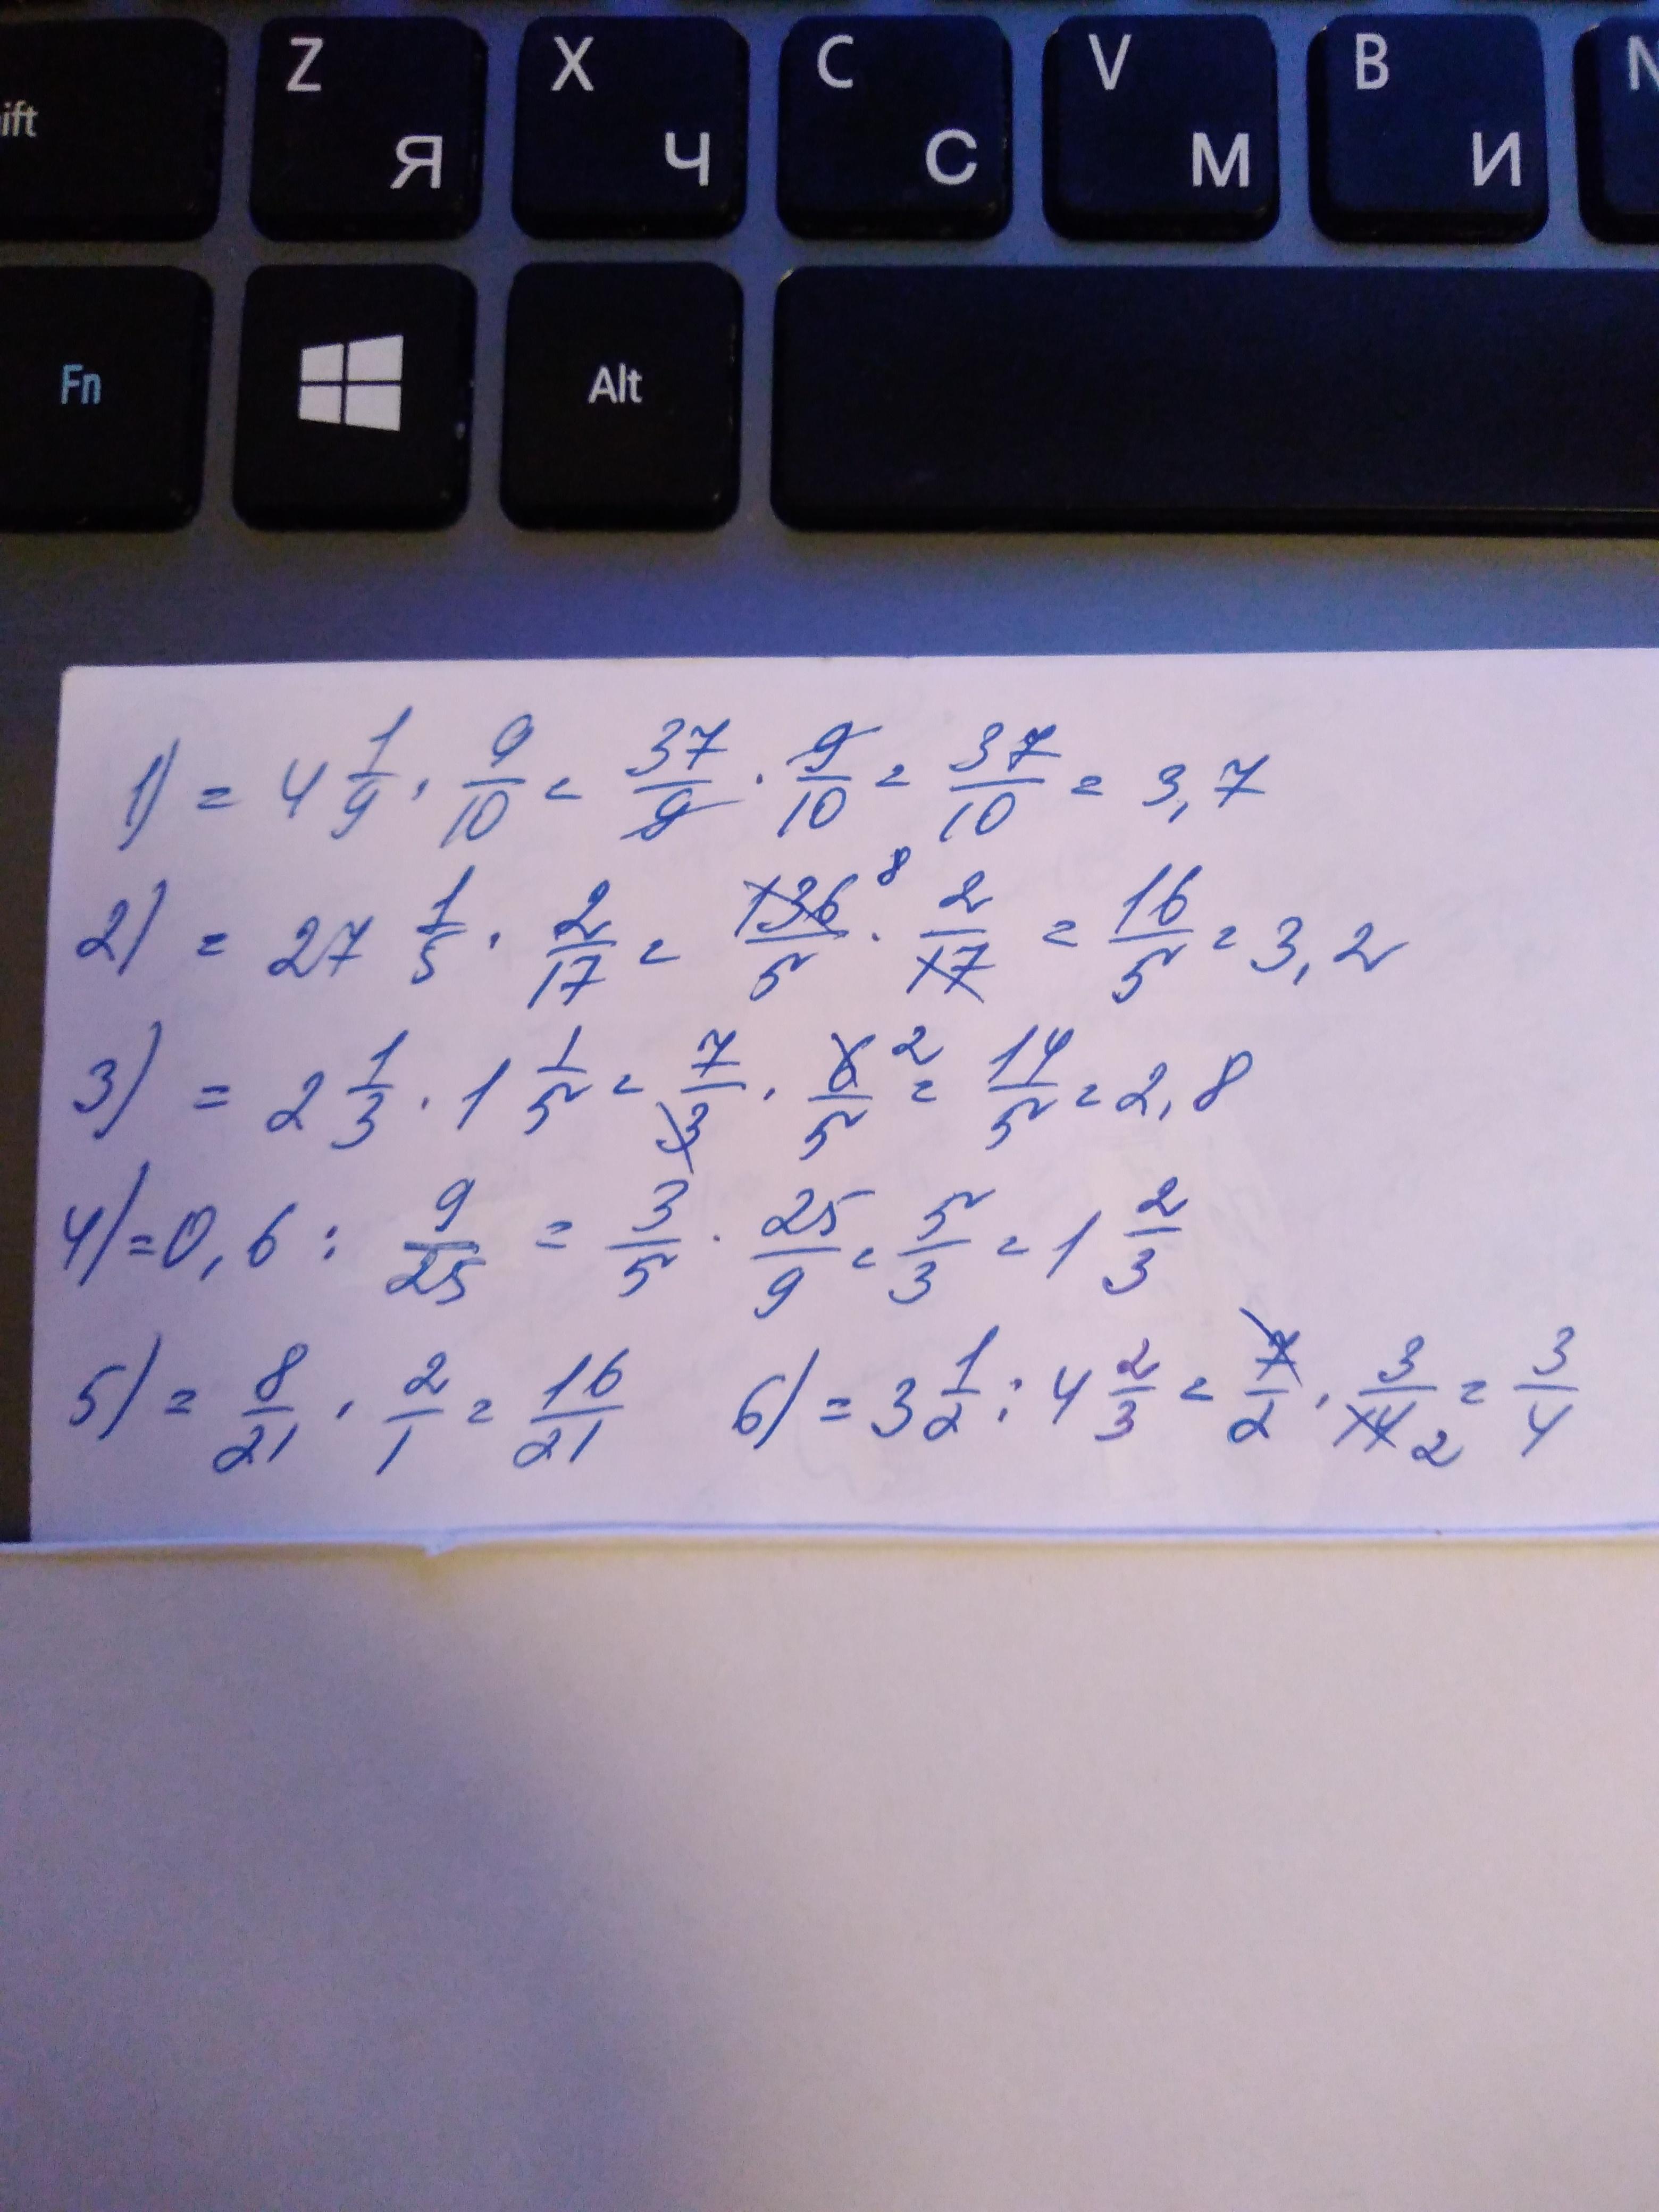 ift Z Я X Ч C С V М B И N
Fn Alt
1) = 4 1/9 · 9/10 = 37/9 · 9/10 = 37/10 = 3,7
2) = 27 1/5 · 2/17 = 136/5 8 · 2/17 = 16/5 = 3,2
3) = 2 1/3 · 1 1/5 = 7/3 · 6/5 2 = 14/5 = 2,8
4) = 0,6 : 9/25 = 3/5 · 25/9 = 5/3 = 1 2/3
5) = 8/21 · 2/1 = 16/21 6) = 3 1/2 : 4 2/3 = 7/2 · 3/14 2 = 3/4